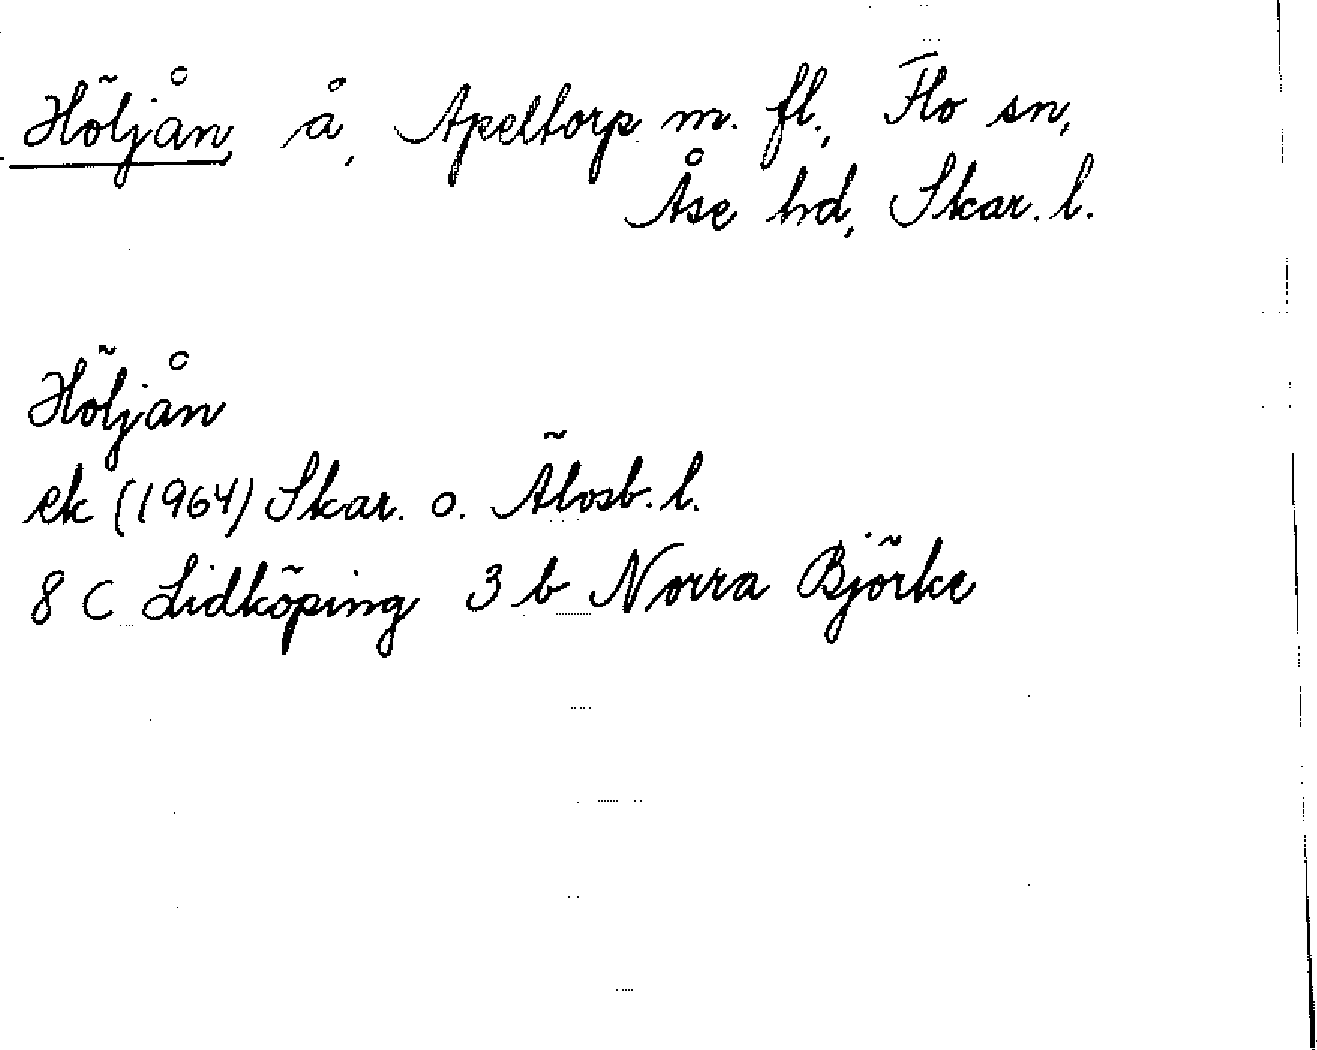 Höljån, å, Apeltorp m. fl., Flo sn,
Åse hd, Skar. l.
Höljån
ek (1964) Skar. o. Älvsb. l.
8 C Lidköping 3 b Norra Björke